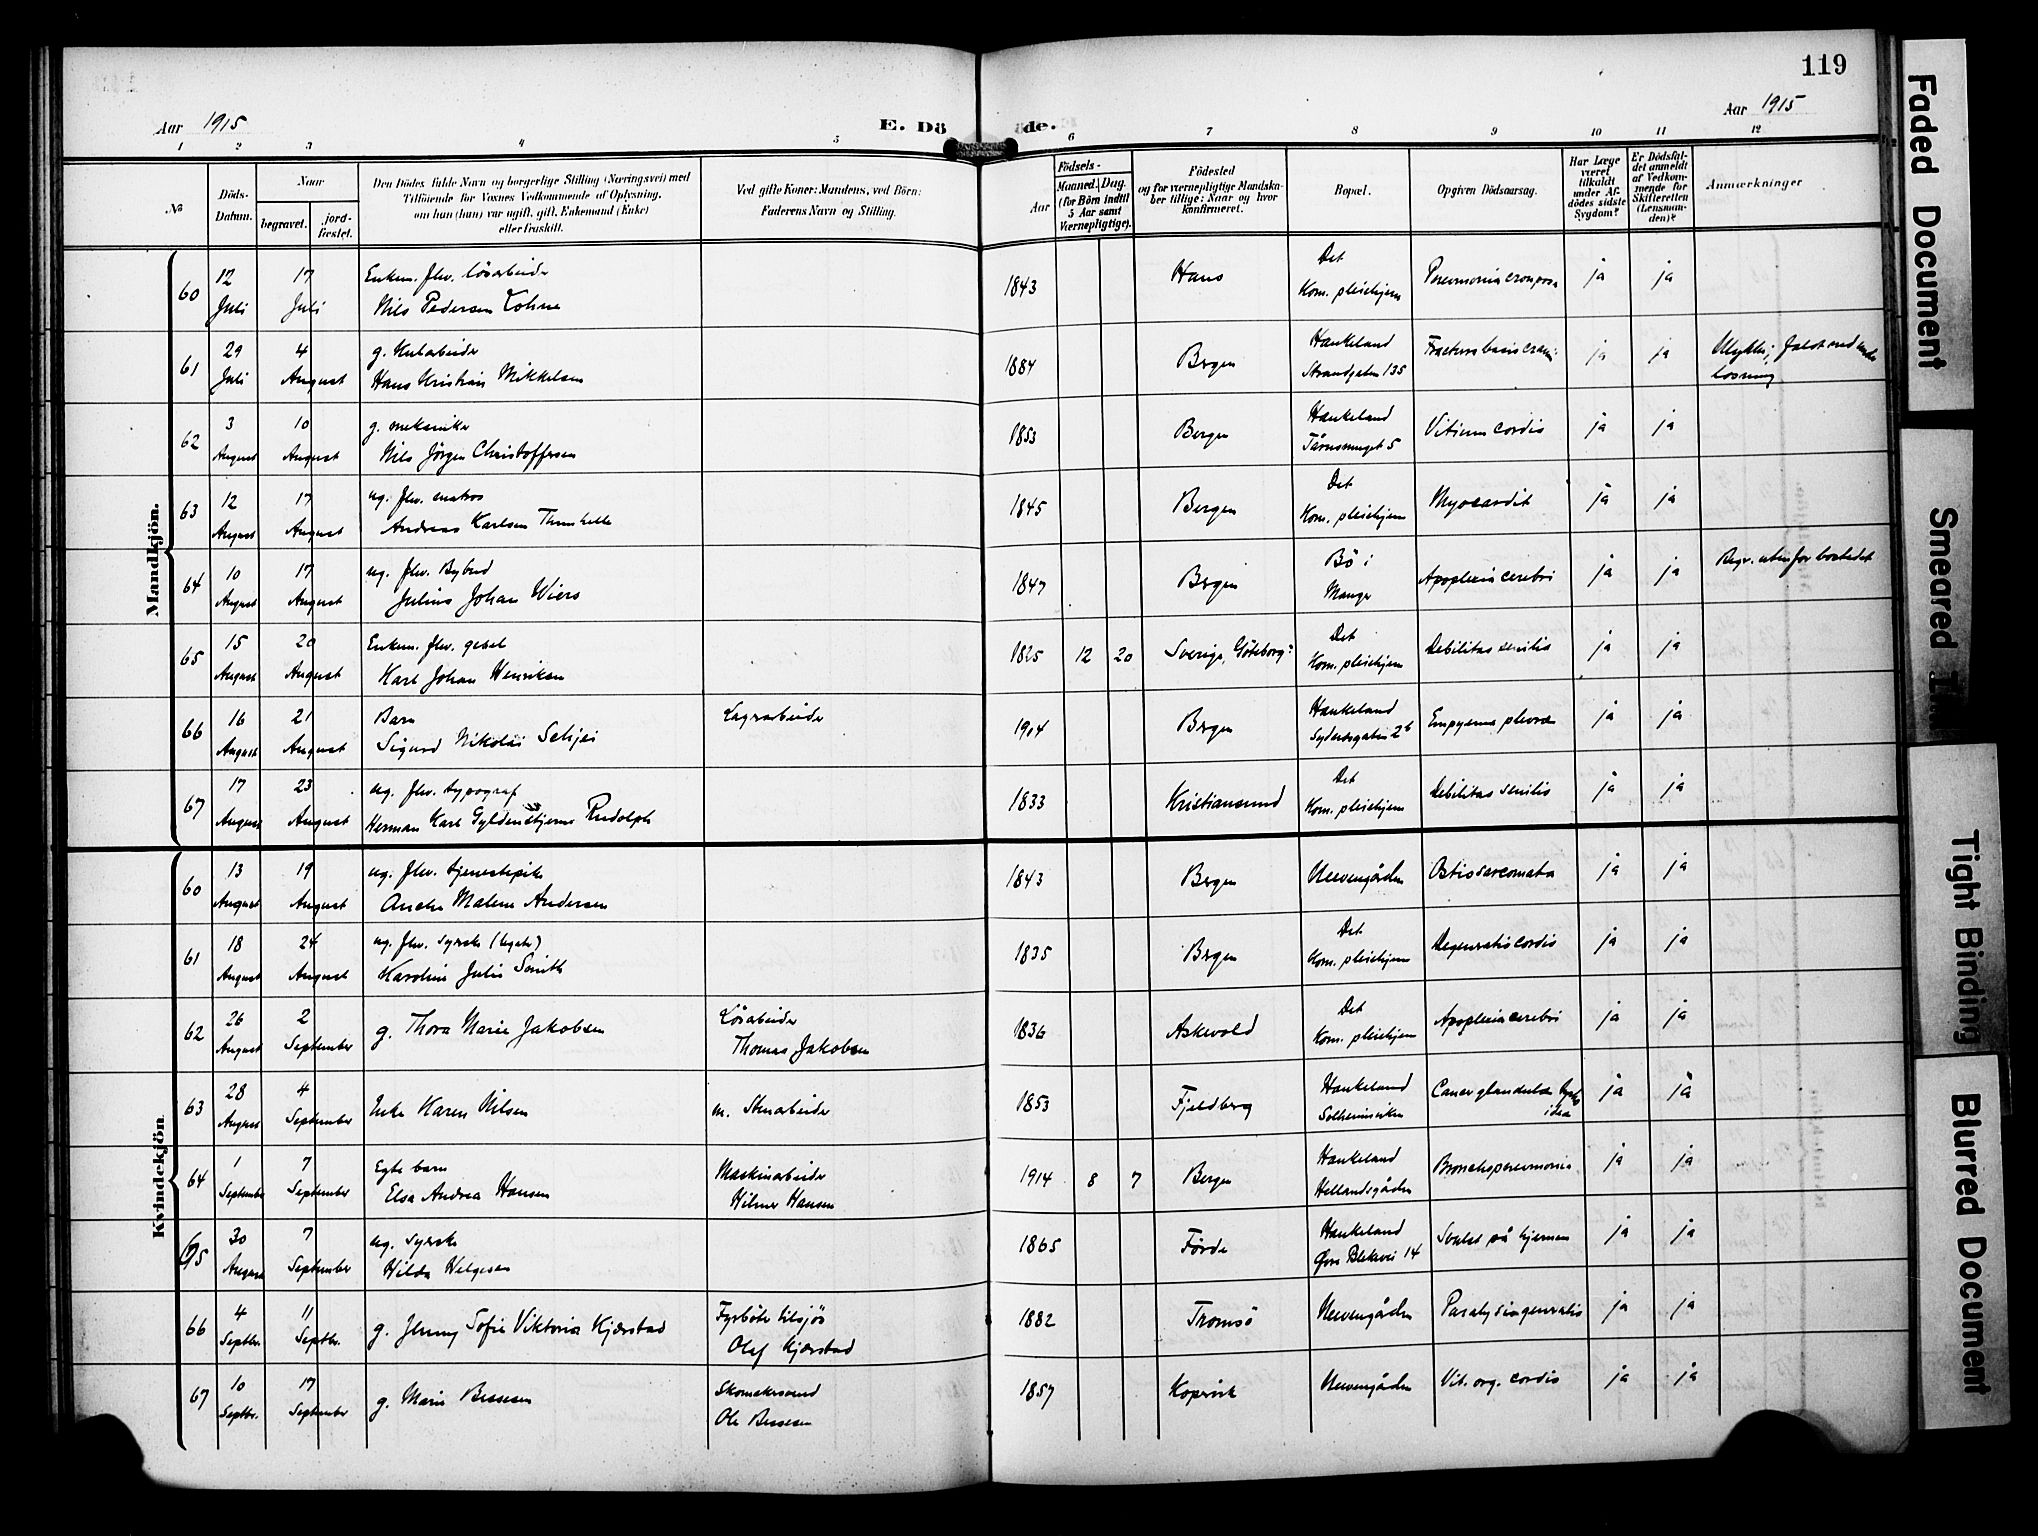 119
Aar 1915
E. Döde.
Aar 1915
1 2 3 4 5 6 7 8 9 10 11 12
№
Döds-Datum.
Naar
begravet.
jord-fæstet.
Den Dödes fulde Navn og borgerlige Stilling (Næringsvei) med
Tilföiende for Voxnes Vedkommende af Oplysning,
om hun (han) var ugift, gift, Enkemand (Enke)
eller fraskilt.
Ved gifte Koner: Mandens, ved Börn:
Faderens Navn og Stilling.
Födsels-
Aar
Maaned. Dag.
(for Börn indtil
5 Aar samt
Værnepligtige).
Födested
og for værnepligtige Mandska-
ber tillige: Naar og hvor
konfirmeret.
Bopæl.
Opgiven Dödsaarsag.
Har Læge
været
tilkaldt
under Af-
dödes sidste
Sygdom?
Er Dödsfal-
det anmeldt
af Vedkom-
mende for
Skifteretten
(Lensman-
den)?
Anmærkninger
Mandkjön.
60 12 Juli 17 Juli Enkem. fhv. løsarbeider Nils Pedersen Lohne 1843 Haus Det Kom. pleiehjem Pneumonia crouposa ja ja
61 29 Juli 4 August g. Kularbeider Hans Kristian Mikkelsen 1884 Bergen Haukeland Strandgaten 135 Fractura basis cranii ja ja
62 3 August 10 August g. mekaniker Nils Jørgen Christoffersen 1853 Bergen Haukeland 5 Vitium cordis ja ja
63 12 August 17 August ug. fhv. matros Andreas Karlsen 1845 Bergen Det Kom. pleiehjem Myocardit ja ja
64 10 August 17 August ug. fhv. Bybud Julius Johan Wiers 1847 Bergen Bö i Manger Apoplexia cerebri ja ja Begr. utenfor bostedet
65 15 August 20 August Enkem. fhv. Karl Johan Henriksen 1825 12 20 Sverige, Göteborg? Det Kom. pleiehjem Debilitas senilis ja ja
66 16 August 21 August Barn Sigurd Nikolai Seljei Lagerarbeider 1904 Bergen Haukeland Empyema pleuræ ja ja
67 17 August 23 August ug. fhv. typograf Herman Karl Gyldenstjerne Rudolph 1833 Kristiansund Det Kom. pleiehjem Debilitas senilis ja ja
Kvindekjön
60 13 August 19 August ug. fhv. tjenestepike Malene Andersen 1843 Bergen Neevengården Ostiosarcomata ja ja
61 18 August 24 August ug. fhv. syerske Karoline Julie Smith 1835 Bergen Det Kom. pleiehjem Degeneratio cordis ja ja
62 26 August 2 September g. Thora Marie Jakobsen Løsarbeider Thomas Jakobsen 1836 Askevold Det Kom. pleiehjem Apoplexia cerebri ja ja
63 28 August 4 September Enke Karen Nilsen m. Stenarbeider 1853 Fjeldberg Haukeland Solheimsviken Cancer glandulæ ja ja
64 1 September 7 September Egte barn Elsa Andrea Hansen Maskinarbeider Hilmer Hansen 1914 8 7 Bergen Haukeland Hellandsgården Bronchopneumonia ja ja
65 30 August 7 September ug. syerske Hilda Helgesen 1865 Førde Haukeland Øvre Blekevei 14 Svulst på hjernen ja ja
66 4 Septbr. 11 Septbr. g. Jenny Sofie Viktoria Kjærstad Fyrböter tilsjös Olaf Kjærstad 1882 Tromsö Neevengården Paralysis generalis ja ja
67 10 Septbr. 17 September g. Marie Bessesen Skomakersvend Ole Bessesen 1857 Kopervik Neevengården Vit. org. cordis ja ja
Faded Document
Smeared
Tight Binding
Blurred Document